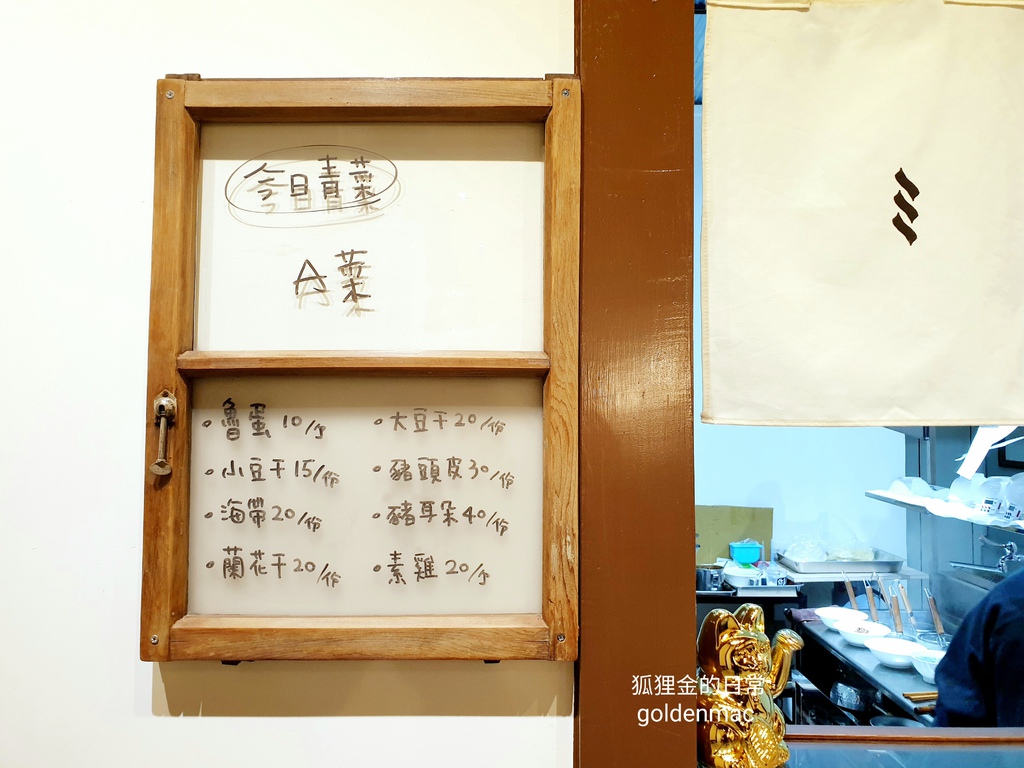 今日青菜
A菜
魯蛋 10/歹
小豆干 15/份
海帶 20/份
蘭花干 20/份
大豆干 20/份
豬頭皮 30/份
豬耳朵 40/份
素雞 20/歹
狐狸金的日常
goldenmac